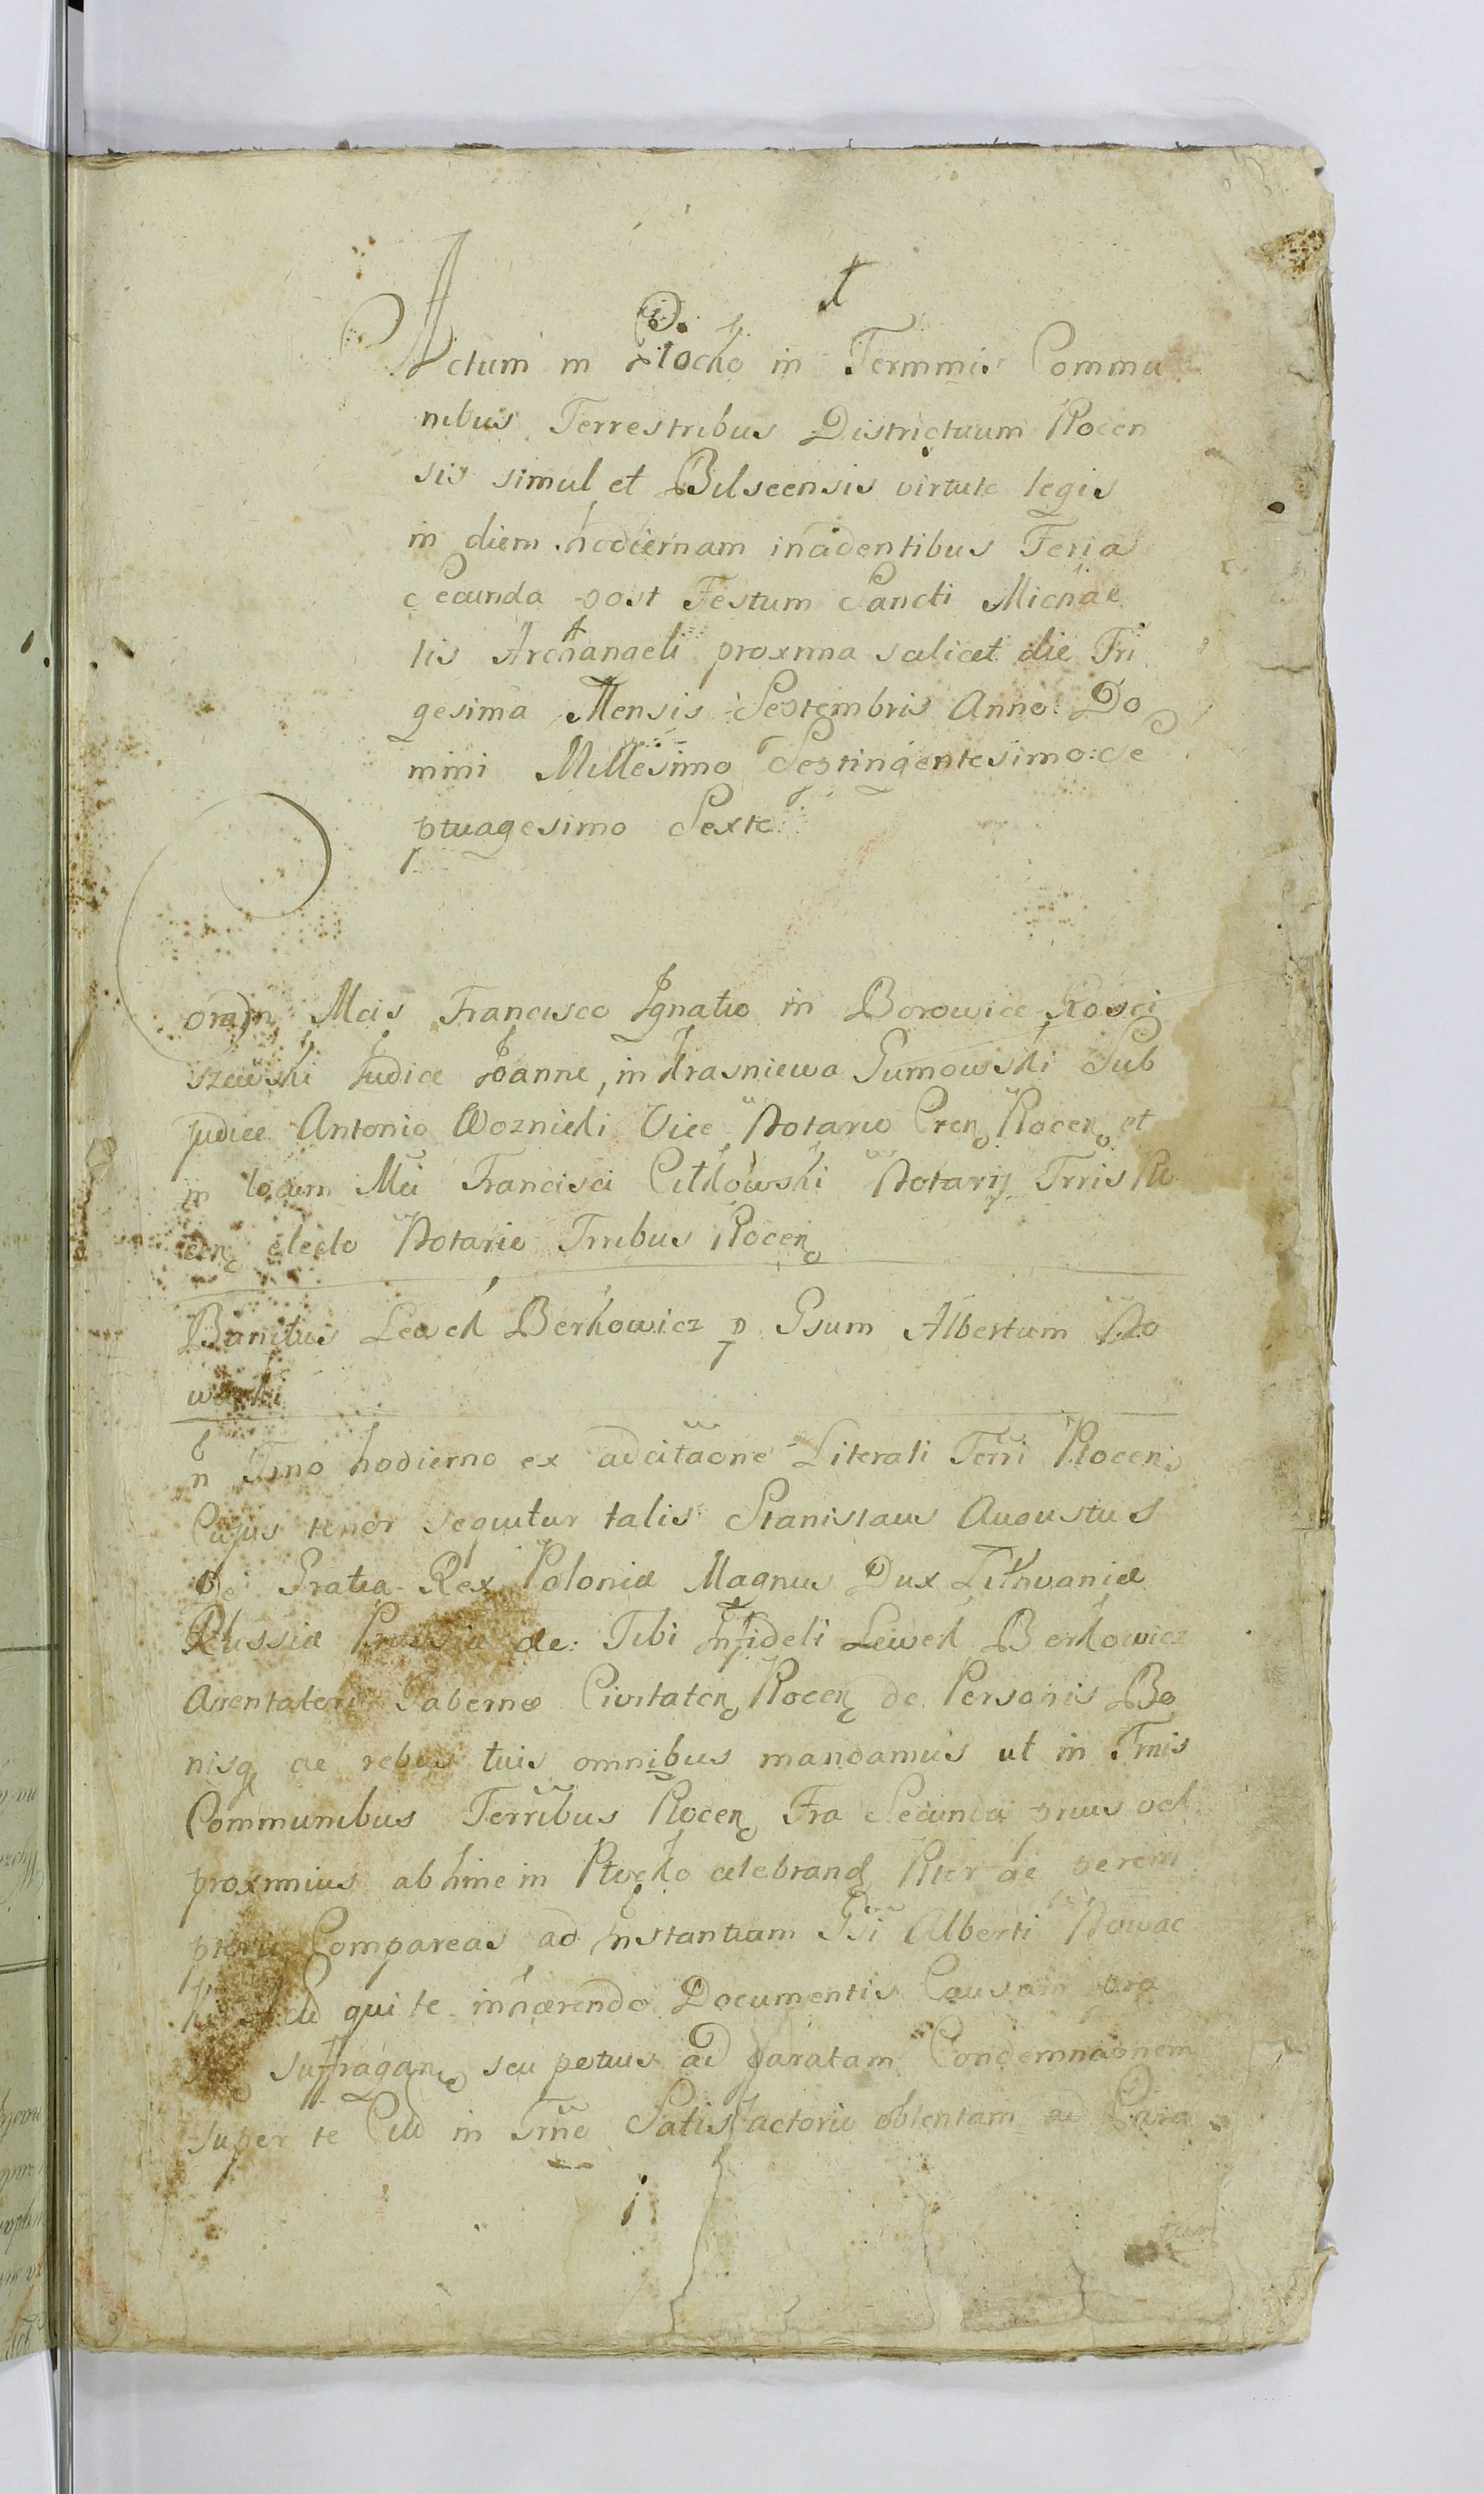 Actum in Plocko in Terminis Commu
nibus Terrestribus Districtuum Plocen
sis simul et Bilscensis virtute legis
in diem hodiernam incidentibus Feria
Secunda post Festum Sancti Michae
lis Archangeli proxima scilicet die Tri
gesima Mensis Septembris Anno Do
mini Millesimo Septingentesimo Se
ptuagesimo Sexto
Coram Mcis Francisco Ignatio in Borowice Kosci
szewski Judice Joanne in Krasniewa Gumowski Sub
Judice Antonio Woznicki Vice Notario Cren Plocen et
in locum Mci Francisci Citkowski Notarij Trris Plo
cen electo Notario Trribus Plocen
Banitus Lewek Berkowicz p Gsum Albertum No
wacki
In Trno hodierno ex adcitaone Literali Terri Plocen
Cujus tenor sequitur talis Stanislaus Augustus
Dei Gratia Rex Poloniæ Magnus Dux Lithvaniæ
Russiæ Prussiæ &c: Tibi Infideli Lewek Berkowicz
Arentatori Tabernæ Civitaten Plocen de Personis Bo
nisq ac rebus tuis omnibus mandamus ut in Trnis
Communibus Terribus Plocen Fra Secunda prius vel
proximius ab hinc in Plocko celebrand Pter ac perem
ptorie Compareas ad Instantiam Gsi Alberti Nowac
ki qui te inhærendo Documentis Causam pra
suffragan seu potius ad paratam Condemnaonem
super te in Trno Satisfactorio obtentam ad Para
tam